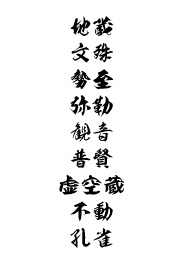 地蔵
文殊
勢至
弥勒
観音
普賢
虚空蔵
不動
孔雀